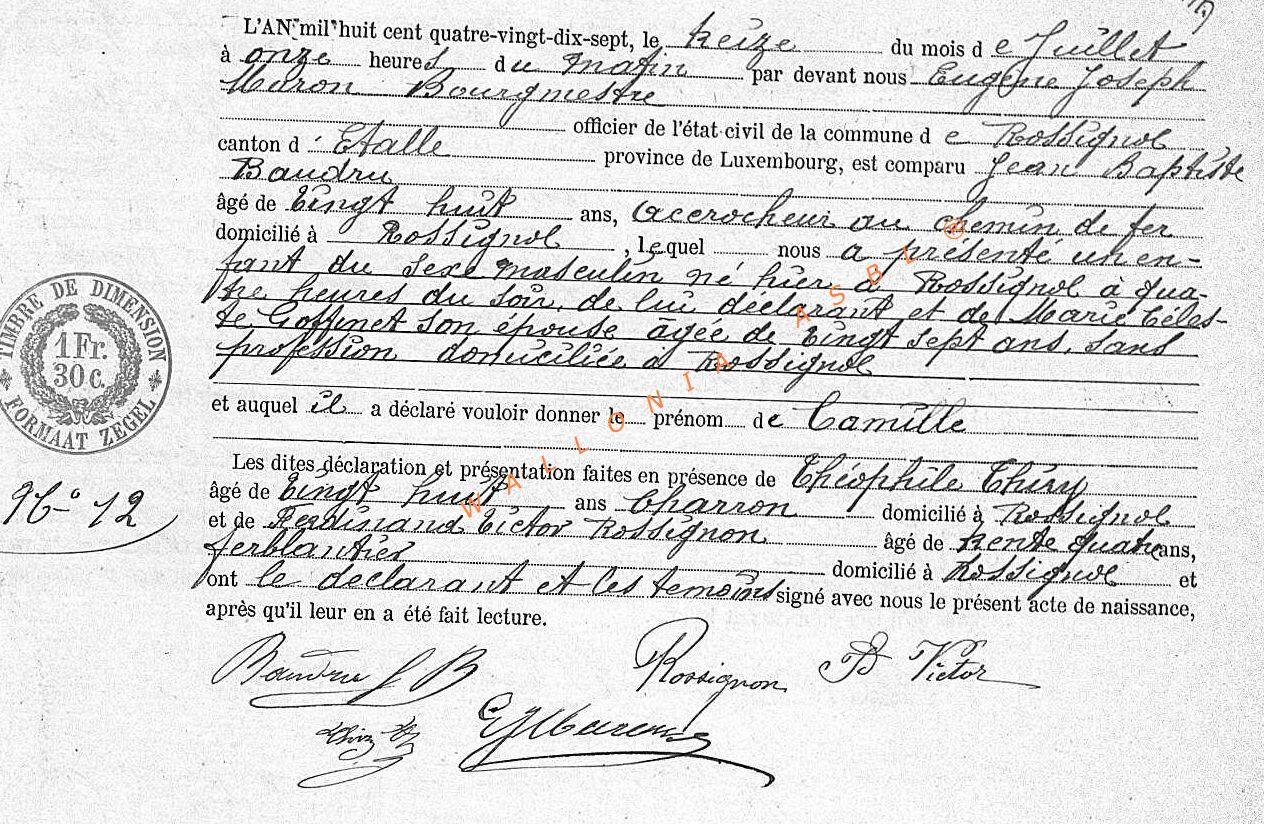 L'AN mil huit cent quatre-vingt-dix-sept, le treize du mois de Juillet
à onze heures du matin par devant nous Eugène Joseph
Maron Bourgmestre
officier de l'état civil de la commune de Rossignol
canton d'Etalle province de Luxembourg, est comparu Jean Baptiste
Baudru
âgé de vingt huit ans, accrocheur au chemin de fer
domicilié à Rossignol, lequel nous a présenté un en-
fant du sexe masculin né hier à Rossignol à qua-
tre heures du soir, de lui déclarant et de Marie Céles-
te Goffinet son épouse âgée de vingt sept ans, sans
profession domiciliée à Rossignol
et auquel il a déclaré vouloir donner le prénom de Camille
Les dites déclaration et présentation faites en présence de Théophile Thiry
âgé de vingt huit ans Charron domicilié à Rossignol
et de Ferdinand Victor Rossignon âgé de trente quatre ans,
ferblantier domicilié à Rossignol et
ont le déclarant et les temoins signé avec nous le présent acte de naissance,
après qu'il leur en a été fait lecture.
Baudru J B Rossignon Victor
Thiry EJMaron
TIMBRE DE DIMENSION
1 Fr.
30 c.
FORMAAT ZEGEL
12
WALLONIA ASBL ©